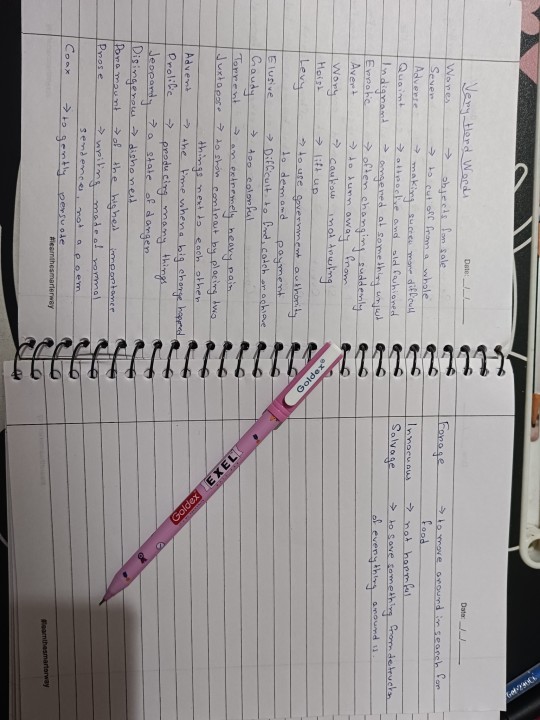 Date: _/_/___
Very Hard Words
Wares → objects for sale
Sever → to cut off from a whole
Adverse → making success more difficult
Quaint → attractive and old fashioned
Indignant → angered at something unjust
Erratic → often changing suddenly
Avert → to turn away from
Wary → cautiou inot trusting
Hoist → lift up
Levy → to use government authority
to demand payment
Elusive → Difficult to find, catch or achieve
Gaudy → too colorful
Torrent → an extremely heavy rain
Juxtapose → to show contrast by placing two
things next to each other
Advent → the time when a big change happend
Prolific → producing many things
Jeopardy → a state of danger
Disingenous → dishonest
Paramount → of the highest importance
Prose → writing mad of normal
sentences, not a poem
Coax → to gently persuade
#learnthesmarterway
Date: _/_/___
Forage → to move around in search for
food
Innocuous → not harmful
Salvage → to save something from detructon
of everything around it.
#learnthesmarterway
Goldex
Goldex EXEL